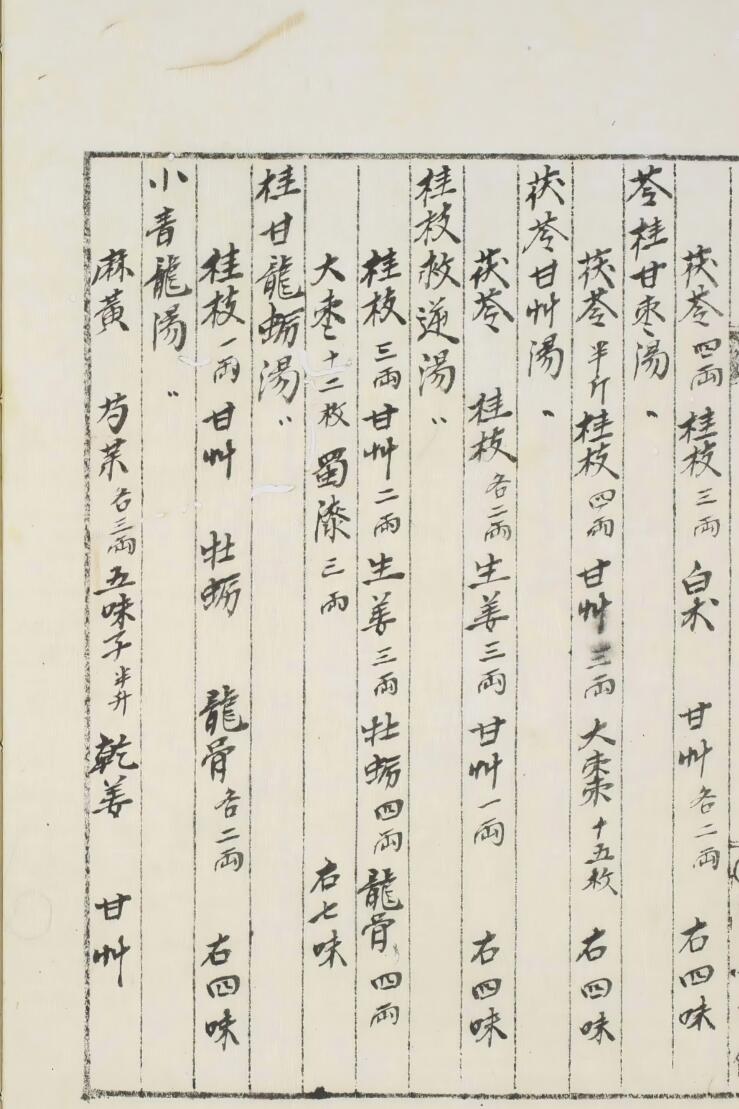 茯苓四兩桂枝三兩 白朮 甘艸各二兩 右四味
苓桂甘枣湯〻
茯苓半斤桂枝四兩甘艸三兩大棗十五枚 右四味
茯苓甘艸湯〻
茯苓 桂枝各二兩生姜三兩甘艸一兩 右四味
桂枝救逆湯〻
桂枝三兩甘艸二兩生姜三兩牡蛎四兩龍骨四兩
大枣十二枚 蜀漆三兩 右七味
桂甘龍蛎湯〻
桂枝一兩甘艸 牡蛎 龍骨各二兩 右四味
小青龍湯〻
麻黃 芍茱各三兩五味子半升 乾姜 甘艸